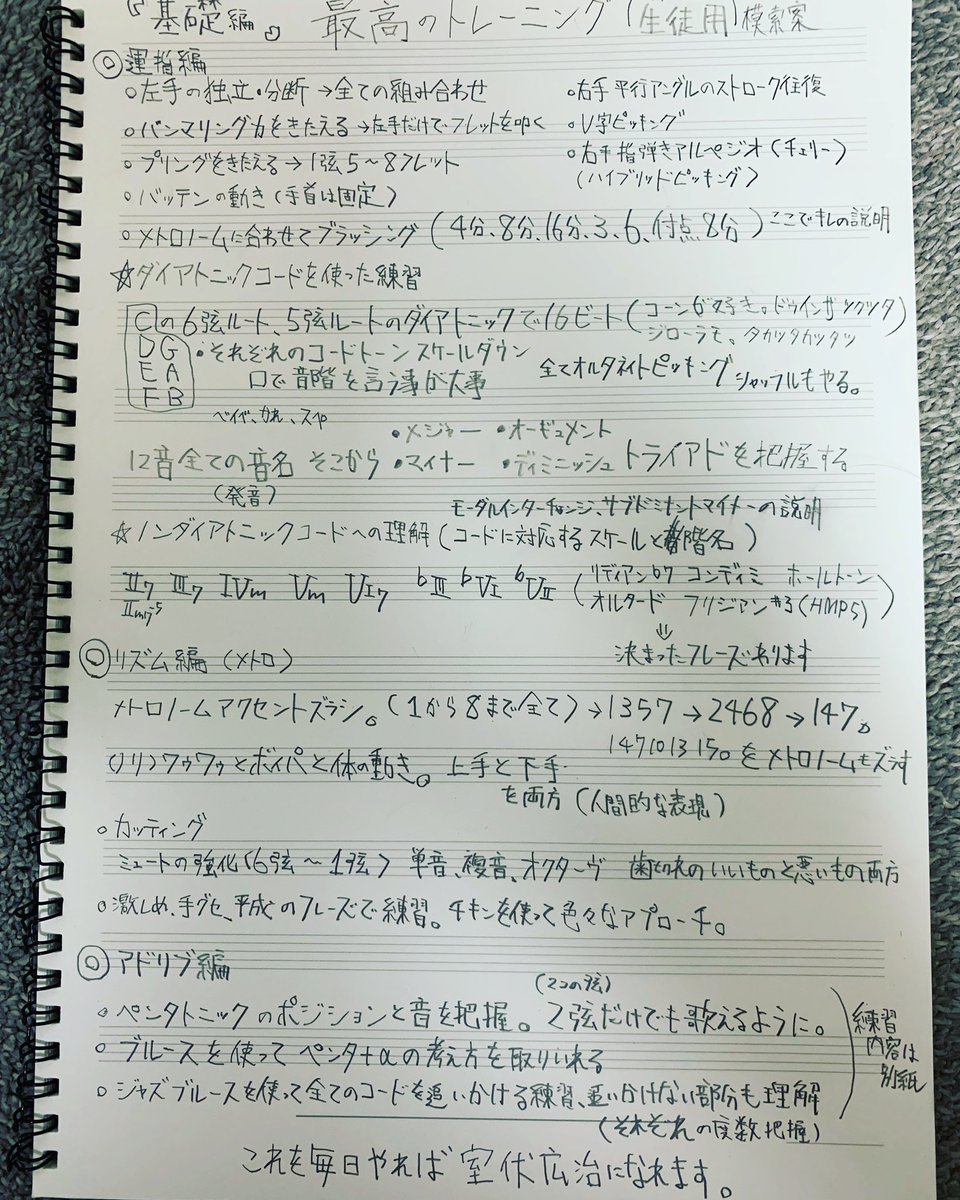 『基礎編』 最高のトレーニング (生徒用) 模索案
◎運指編
○左手の独立・分断 → 全ての組み合わせ
○右手平行アングルのストローク往復
○ハンマリング力をきたえる → 左手だけでフレットを叩く
○V字ピッキング
○プリングをきたえる → 1弦5~8フレット
○右手指弾きアルペジオ (チェリー)
(ハイブリッドピッキング)
○バッテンの動き (手首は固定)
○メトロノームに合わせてブラッシング (4分、8分、16分、3、6、付点8分) ここでキレの説明
☆ダイアトニックコードを使った練習
Cの6弦ルート、5弦ルートのダイアトニックで16ビート
ジローラモ、タカツタカツタツ
D G ・それぞれのコードトーン スケールダウン
E A 口で音階を言う事が大事
F B
全てオルタネイトピッキング シャッフルもやる。
・メジャー ・オーギュメント
12音全ての音名 そこから ・マイナー ・ディミニッシュ トライアドを把握する。
(発音)
モーダルインターチェンジ、サブドミナントマイナーの説明
☆ノンダイアトニックコードへの理解 (コードに対応するスケールと階名)
Ⅱ7 Ⅲ7 Ⅳm Ⅴm Ⅵ7 bⅢ bⅥ bⅦ
Ⅱm7-5
(リディアンb7 コンディミ ホールトーン
オルタード フリジアン#3 (HMP5))
⇓
決まったフレーズあります
◎リズム編 (メトロ)
メトロノームアクセントズラシ。(1から8まで全て) → 1357 → 2468 → 147。
147101315。をメトロノームもズラす
(ノリ) ワゥワゥとボイパと体の動き。上手と下手
を両方 (人間的な表現)
○カッティング
ミュートの強化 (6弦~1弦) 単音、複音、オクターヴ 歯切れのいいものと悪いもの両方
○激しめ、手グセ、平成のフレーズで練習。チキンを使って色々なアプローチ。
◎アドリブ編
(2つの弦)
○ペンタトニックのポジションと音を把握。2弦だけでも歌えるように。
○ブルースを使ってペンタ+αの考え方を取りいれる
○ジャズブルースを使って全てのコードを追いかける練習、追いかけない部分も理解
(それぞれの度数把握)
練習
内容は
別紙
これを毎日やれば室伏広治になれます。